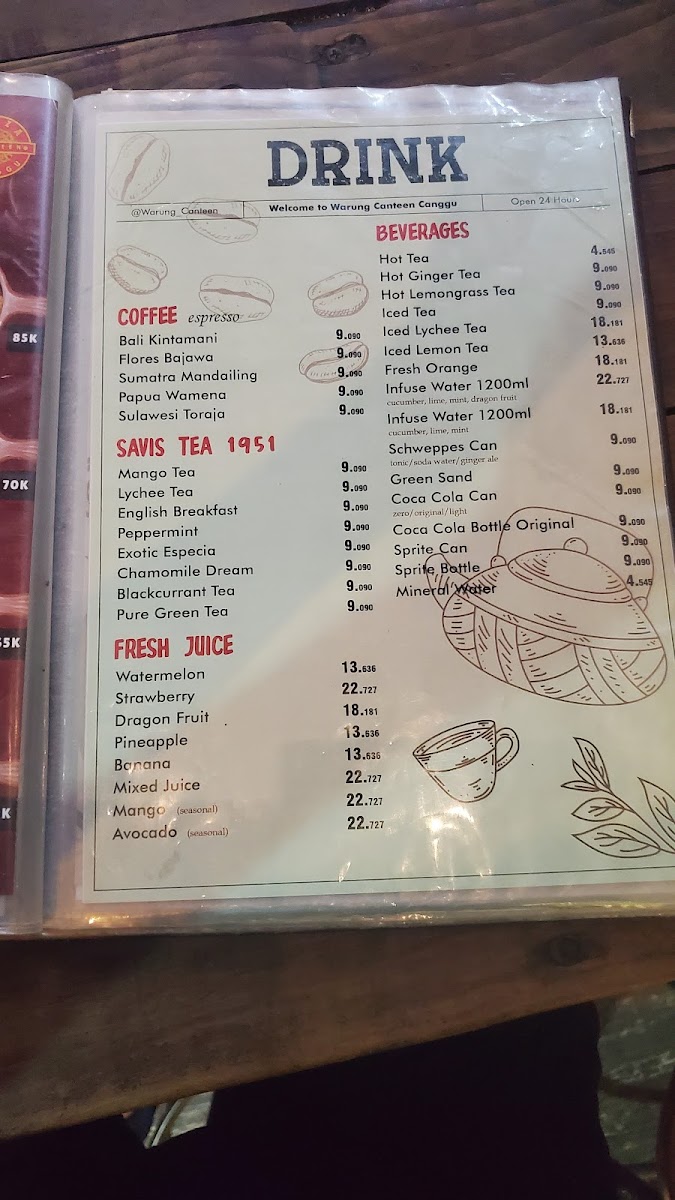 DRINK
@Warung_Canteen
Welcome to Warung Canteen Canggu
Open 24 Hours
COFFEE espresso
Bali Kintamani 9.090
Flores Bajawa 9.090
Sumatra Mandailing 9.090
Papua Wamena 9.090
Sulawesi Toraja 9.090
SAVIS TEA 1951
Mango Tea 9.090
Lychee Tea 9.090
English Breakfast 9.090
Peppermint 9.090
Exotic Especia 9.090
Chamomile Dream 9.090
Blackcurrant Tea 9.090
Pure Green Tea 9.090
FRESH JUICE
Watermelon 13.636
Strawberry 22.727
Dragon Fruit 18.181
Pineapple 13.636
Banana 13.636
Mixed Juice 22.727
Mango (seasonal) 22.727
Avocado (seasonal) 22.727
BEVERAGES
Hot Tea 4.545
Hot Ginger Tea 9.090
Hot Lemongrass Tea 9.090
Iced Tea 9.090
Iced Lychee Tea 18.181
Iced Lemon Tea 13.636
Fresh Orange 18.181
Infuse Water 1200ml 22.727
cucumber, lime, mint, dragon fruit
Infuse Water 1200ml 18.181
cucumber, lime, mint
Schweppes Can 9.090
tonic/soda water/ginger ale
Green Sand 9.090
Coca Cola Can 9.090
zero/original/light
Coca Cola Bottle Original 9.090
Sprite Can 9.090
Sprite Bottle 9.090
Mineral Water 4.545
85K
70K
55K
K